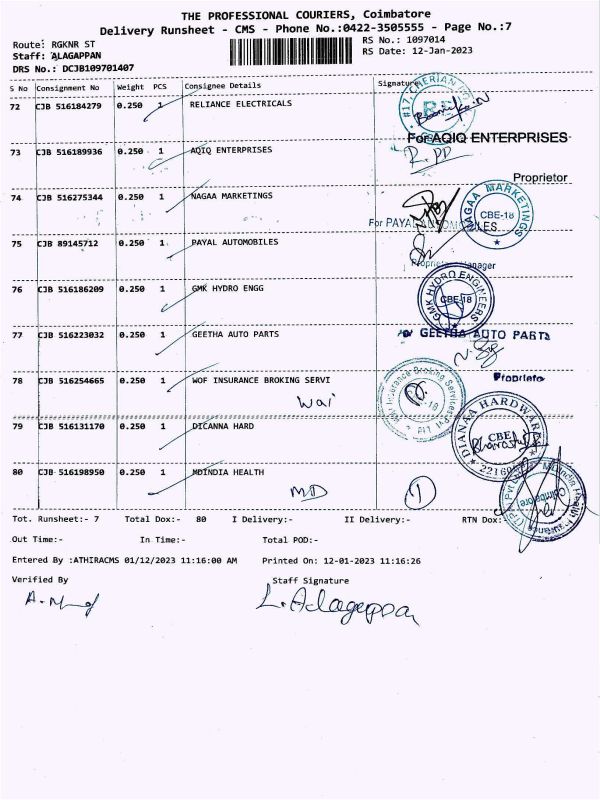 THE PROFESSIONAL COURIERS, Coimbatore
Delivery Runsheet - CMS - Phone No.:0422-3505555 - Page No.:7
Route: RGKNR ST
RS No.: 1097014
Staff: ALAGAPPAN
RS Date: 12-Jan-2023
DRS No.: DCJB109701407
S No Consignment No Weight PCS Consignee Details Signature
72 CJB 516184279 0.250 1 RELIANCE ELECTRICALS
#17, CHERIAN
For AQIQ ENTERPRISES
73 CJB 516189936 0.250 1 AQIQ ENTERPRISES
Proprietor
74 CJB 516275344 0.250 1 NAGAA MARKETINGS
NAGAA MARKETINGS
CBE-18
For PAYAL AUTOMOBILES
75 CJB 89145712 0.250 1 PAYAL AUTOMOBILES
Manager
76 CJB 516186209 0.250 1 GMK HYDRO ENGG
GMK HYDRO ENGINEERS
CBE-18
77 CJB 516223032 0.250 1 GEETHA AUTO PARTS
GEETHA AUTO PARTS
78 CJB 516254665 0.250 1 WOF INSURANCE BROKING SERVI
Wai
Insurance Broking Services Pvt Ltd
Proprieto
79 CJB 516131170 0.250 1 DICANNA HARD
DIANAA HARDWARE
CBE
80 CJB 516198950 0.250 1 MDINDIA HEALTH
MD
MDIndia Health Insurance
Coimbatore
Tot. Runsheet:- 7 Total Dox:- 80 I Delivery:- II Delivery:- RTN Dox:
Out Time:- In Time:- Total POD:-
Entered By :ATHIRACMS 01/12/2023 11:16:00 AM Printed On: 12-01-2023 11:16:26
Verified By Staff Signature
L. Alagappan